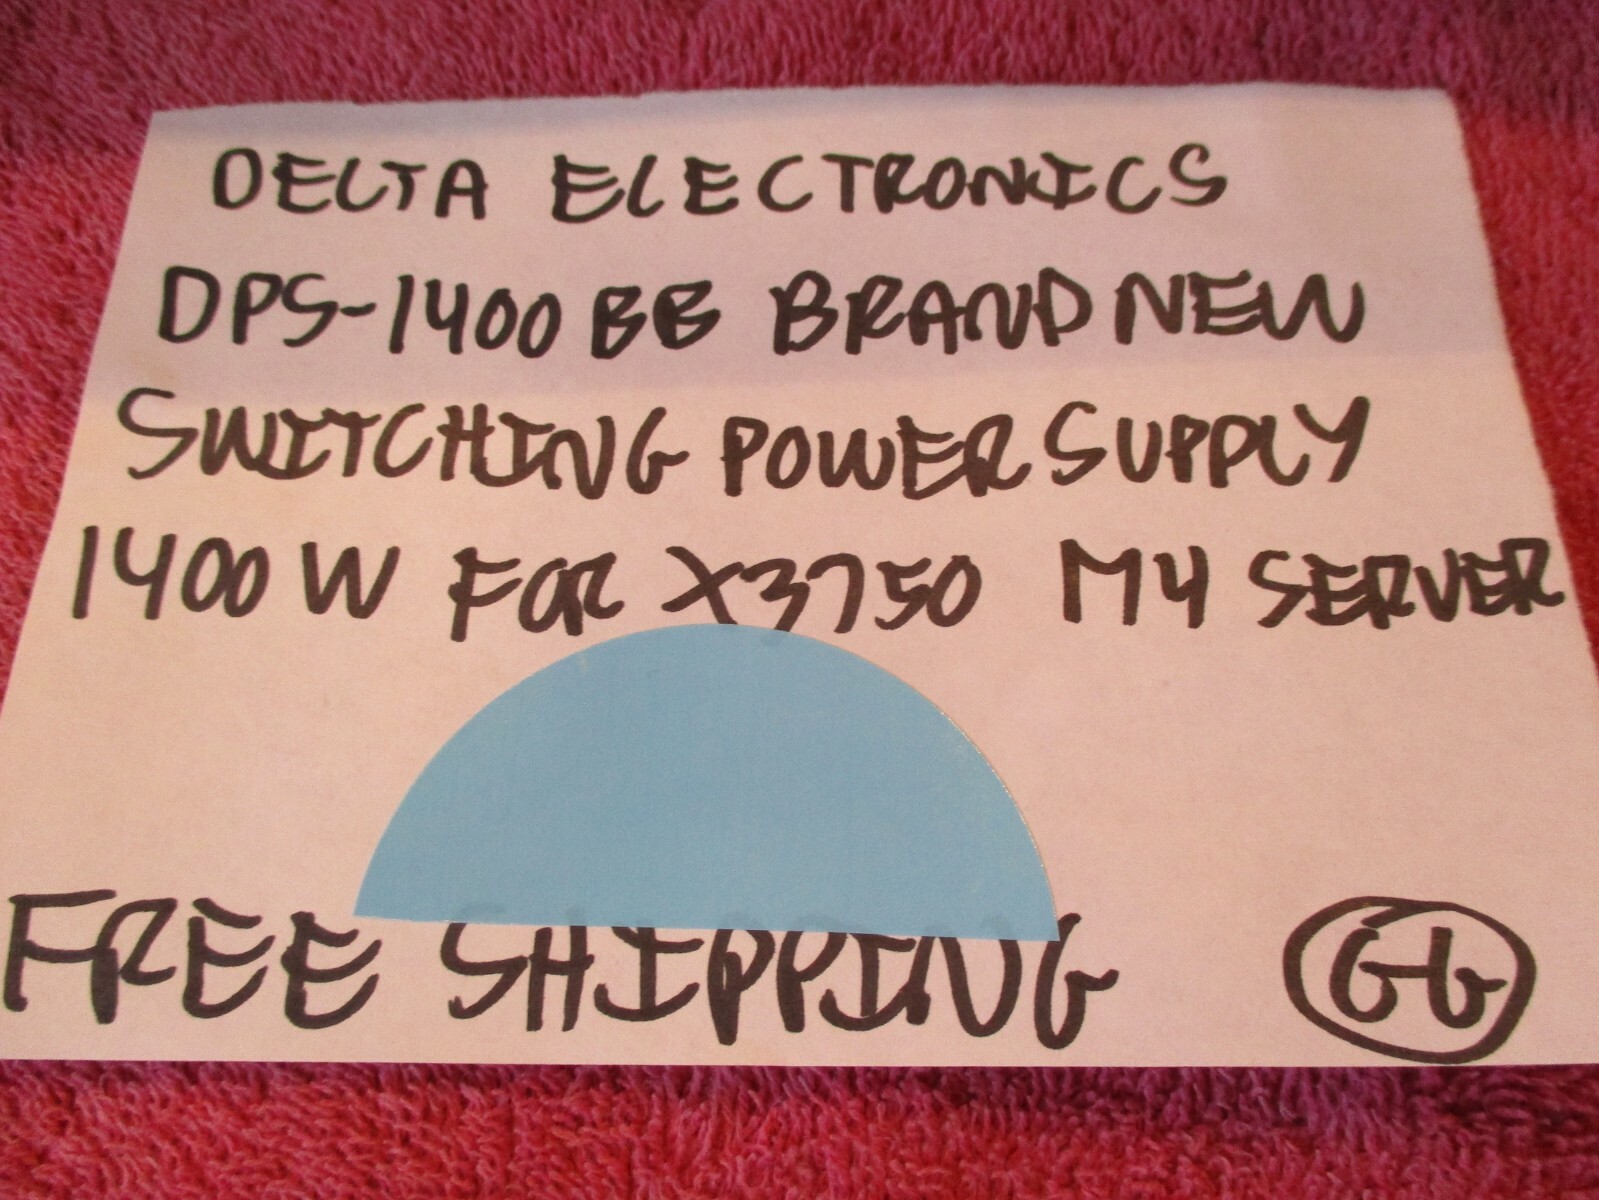 DELTA ELECTRONICS
DPS-1400 BB BRAND NEW
SWITCHING POWER SUPPLY
1400 W FOR X3750 M4 SERVER
FREE SHIPPING